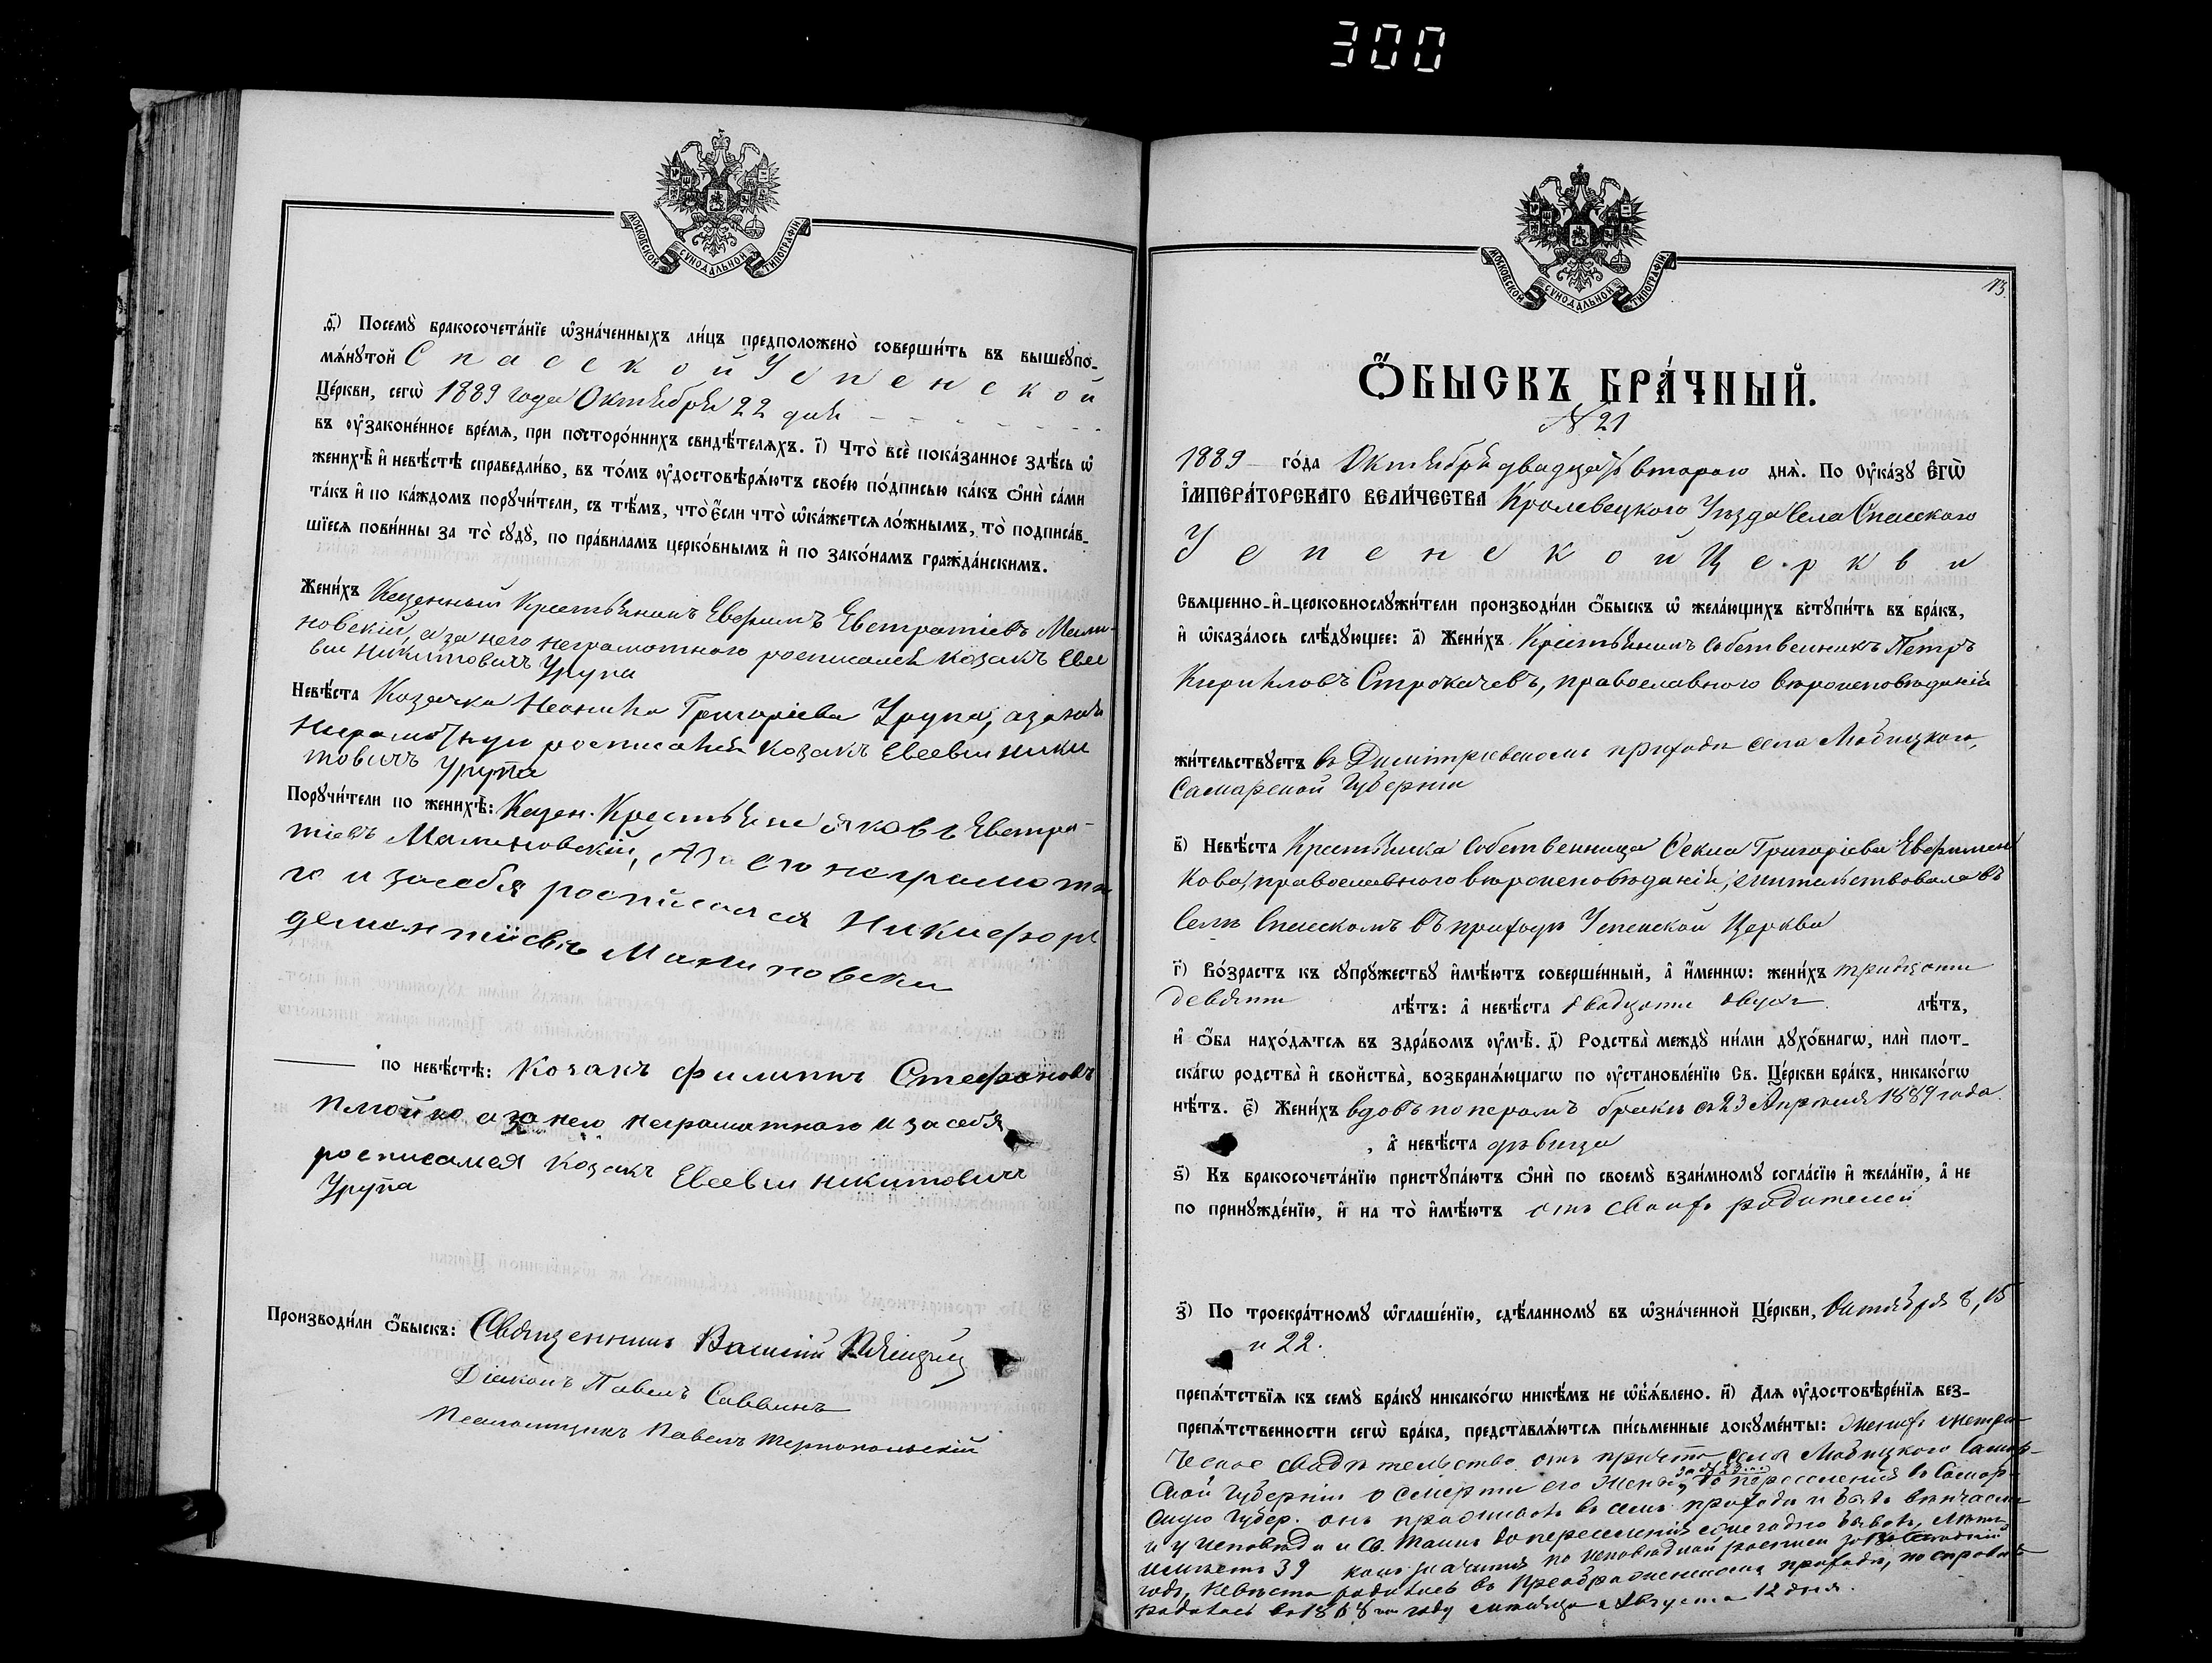 300
МОСКОВСКОЙ СУНОДАЛЬНОЙ ТИПОГРАФІИ
д҃) Посемꙋ̀ бракосочета́нїе ѡ҆зна́ченныхъ ли́цъ предположено̀ соверши́ть въ вышеꙋпо-
мѧ́нꙋтой Спасской Успенской
Це́ркви, сегѡ̀ 1889 года Октября 22 дня
въ ᲂу҆законе́нное вре́мѧ, при посторо́ннихъ свидѣ́телѧхъ. і҃) Что̀ всѐ пока́занное здѣ́сь ѡ҆
женихѣ̀ и҆ невѣ́стѣ справедли́во, въ то́мъ ᲂу҆достовѣрѧ́ютъ свое́ю по́дписью ка́къ ѻ҆нѝ са́ми
та́къ и҆ по ка́ждомъ порꙋчи́тели, съ тѣ́мъ, что̀ є҆́сли что̀ ѡ҆ка́жетсѧ ло́жнымъ, то̀ подписа́в-
шїесѧ пови́нны за то̀ сꙋдꙋ̀, по пра́виламъ церко́внымъ и҆ по зако́намъ гражда́нскимъ.
Жени́хъ Казенный Крестьянинъ Евфимъ Евстратіевъ Мали-
новскій, а за него неграмотного росписался козакъ Евсе
вій Никитовичъ Урупа
Невѣ́ста Козачка Неонила Григоріева Урупа, а за нея
неграмотную росписался козакъ Евсевии Ники
товичъ Урупа
Порꙋчи́тели по женихѣ̀: Казен. Крестьяне Яковъ Евстра-
тіевъ Малиновскій, А за его неграмотна
го и засебя росписался Никифоръ
дементіевъ Малиновски
по невѣ́стѣ: Козакъ Филиппъ Стефановъ
Плюйко а за него неграмотного и за себя
росписался козакъ Евсевии никитовичъ
Урупа
Производи́ли ѻ҆́быскъ: Священникъ Василій
Діаконъ Павелъ Саввинъ
Псаломщикъ Павелъ Тернопольскій
МОСКОВСКОЙ СУНОДАЛЬНОЙ ТИПОГРАФІИ
13.
Ѻ҆́БЫСКЪ БРА́ЧНЫЙ.
№ 21
1889 го́да Октября двадцать второго днѧ̀. По ᲂу҆ка́зꙋ Є҆ГѠ̀
І҆МПЕРА́ТОРСКАГО ВЕЛИ́ЧЕСТВА Кролевецкого Уѣзда Села Спасского
Успенской Церкви
Свѧщенно-и҆-церковнослꙋжи́тели производи́ли ѻ҆́быскъ ѡ҆ жела́ющихъ встꙋпи́ть въ бра́къ,
и҆ ѡ҆каза́лось слѣ́дꙋющее: а҃) Жени́хъ Крестьянинъ Собственникъ Петръ
Кириловъ Строкачевъ, православного вѣроисповѣданія
жи́тельствꙋетъ въ Димитріевскомъ приходѣ села Любицкого,
Самарской Губерніи
в҃) Невѣ́ста Крестьянка Собственница Ѳекла Григоріева Евфимен
кова, православного вѣроисповѣданія, жительствовала въ
Селѣ Спасскомъ въ приходѣ Успенской Церкви
г҃) Во́зрастъ къ сꙋпрꙋ́жествꙋ и҆мѣ́ютъ соверше́нный, а҆ и҆́меннѡ: жени́хъ тридцати
девяти лѣ́тъ: а҆ невѣ́ста двадцати двухъ лѣ́тъ,
и҆ ѻ҆́ба нахо́дѧтсѧ въ здра́вомъ ᲂу҆мѣ̀. д҃) Родства̀ междꙋ̀ ни́ми дꙋхо́внагѡ, илѝ плот-
ска́гѡ родства̀ и҆ свойства̀, возбранѧ́ющагѡ по ᲂу҆становле́нїю Св. Це́ркви бра́къ, никако́гѡ
нѣ́тъ. є҃) Жени́хъ вдовъ по первомъ бракѣ съ 23 Апрѣля 1889 года
, а҆ невѣ́ста дѣвица
ѕ҃) Къ бракосочета́нїю пристꙋпа́ютъ ѻ҆нѝ по своемꙋ̀ взаи́мномꙋ согла́сїю и҆ жела́нїю, а҆ не
по принꙋжде́нїю, и҆ на то̀ и҆мѣ́ютъ отъ своихъ родителей
з҃) По троекра́тномꙋ ѡ҆глаше́нїю, сдѣ́ланномꙋ въ ѡ҆зна́ченной Це́ркви, Октября 8, 15
и 22.
препѧ́тствїѧ къ семꙋ̀ бра́кꙋ никако́гѡ никѣ́мъ не ѡ҆б̾ѧ́влено. и҃) Длѧ ᲂу҆достовѣре́нїѧ без-
препѧ́тственности сегѡ̀ бра́ка, представлѧ́ютсѧ пи́сьменные докꙋме́нты: Женихъ метри
ческое свидѣтельство отъ причта села Любицкого Самар-
ской Губерніи о смерти его жены, за № 23. до переселенія въ Самар-
скую Губер. онъ проживалъ въ семъ приходѣ и былъ вѣнчаемъ
и у исповѣди и Св. Таинъ до переселенія ежегодно бывалъ, лѣтъ
имѣетъ 39 какъ значится по исповѣдной росписи за
годъ, Невѣста родилась въ Преображенскомъ приходѣ, по справкѣ
родилась въ 1868 году мѣсяца Августа 12 дня.